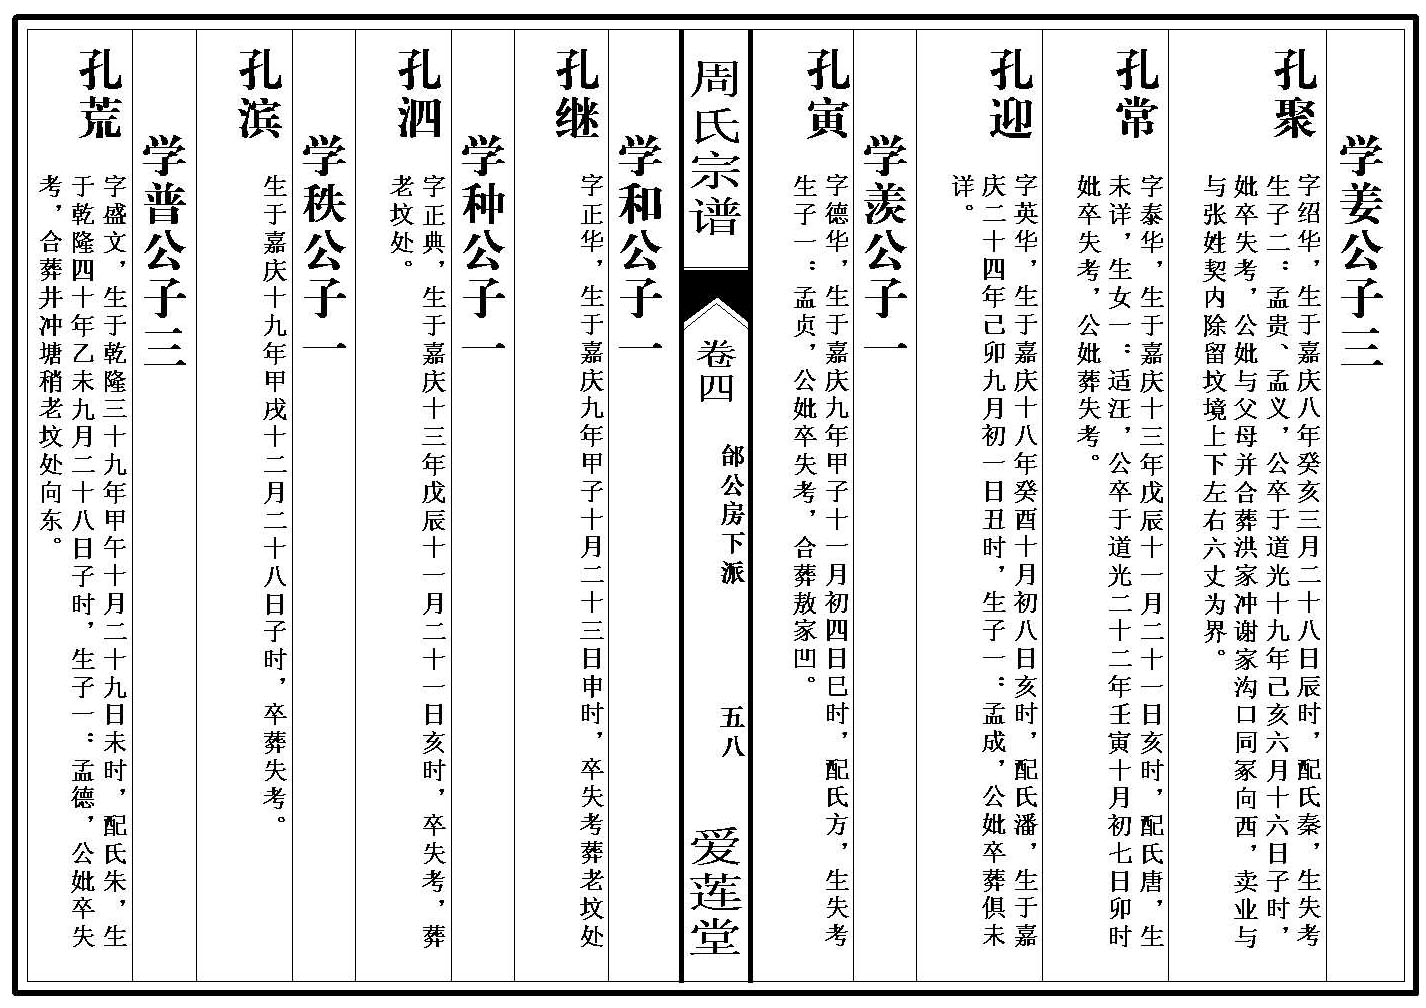 学姜公子三
孔聚
字绍华，生于嘉庆八年癸亥三月二十八日辰时，配氏秦，生失考
生子二：孟贵、孟义，公卒于道光十九年己亥六月十六日子时，
妣卒失考，公妣与父母并合葬洪家冲谢家沟口同冢向西，卖业与
与张姓契内除留坟境上下左右六丈为界。
孔常
字泰华，生于嘉庆十三年戊辰十一月二十一日亥时，配氏唐，生
未详，生女一：适汪，公卒于道光二十二年壬寅十月初七日卯时
妣卒失考，公妣葬失考。
孔迎
字英华，生于嘉庆十八年癸酉十月初八日亥时，配氏潘，生于嘉
庆二十四年己卯九月初一日丑时，生子一：孟成，公妣卒葬俱未
详。
学羡公子一
孔寅
字德华，生于嘉庆九年甲子十一月初四日巳时，配氏方，生失考
生子一：孟贞，公妣卒失考，合葬敖家凹。
周氏宗谱
卷四
邰公房下派
五八
爱莲堂
学和公子一
孔继
字正华，生于嘉庆九年甲子十月二十三日申时，卒失考葬老坟处
学种公子一
孔泗
字正典，生于嘉庆十三年戊辰十一月二十一日亥时，卒失考，葬
老坟处。
学秩公子一
孔滨
生于嘉庆十九年甲戌十二月二十八日子时，卒葬失考。
学普公子三
孔荒
字盛文，生于乾隆三十九年甲午十月二十九日未时，配氏朱，生
于乾隆四十年乙未九月二十八日子时，生子一：孟德，公妣卒失
考，合葬井冲塘稍老坟处向东。